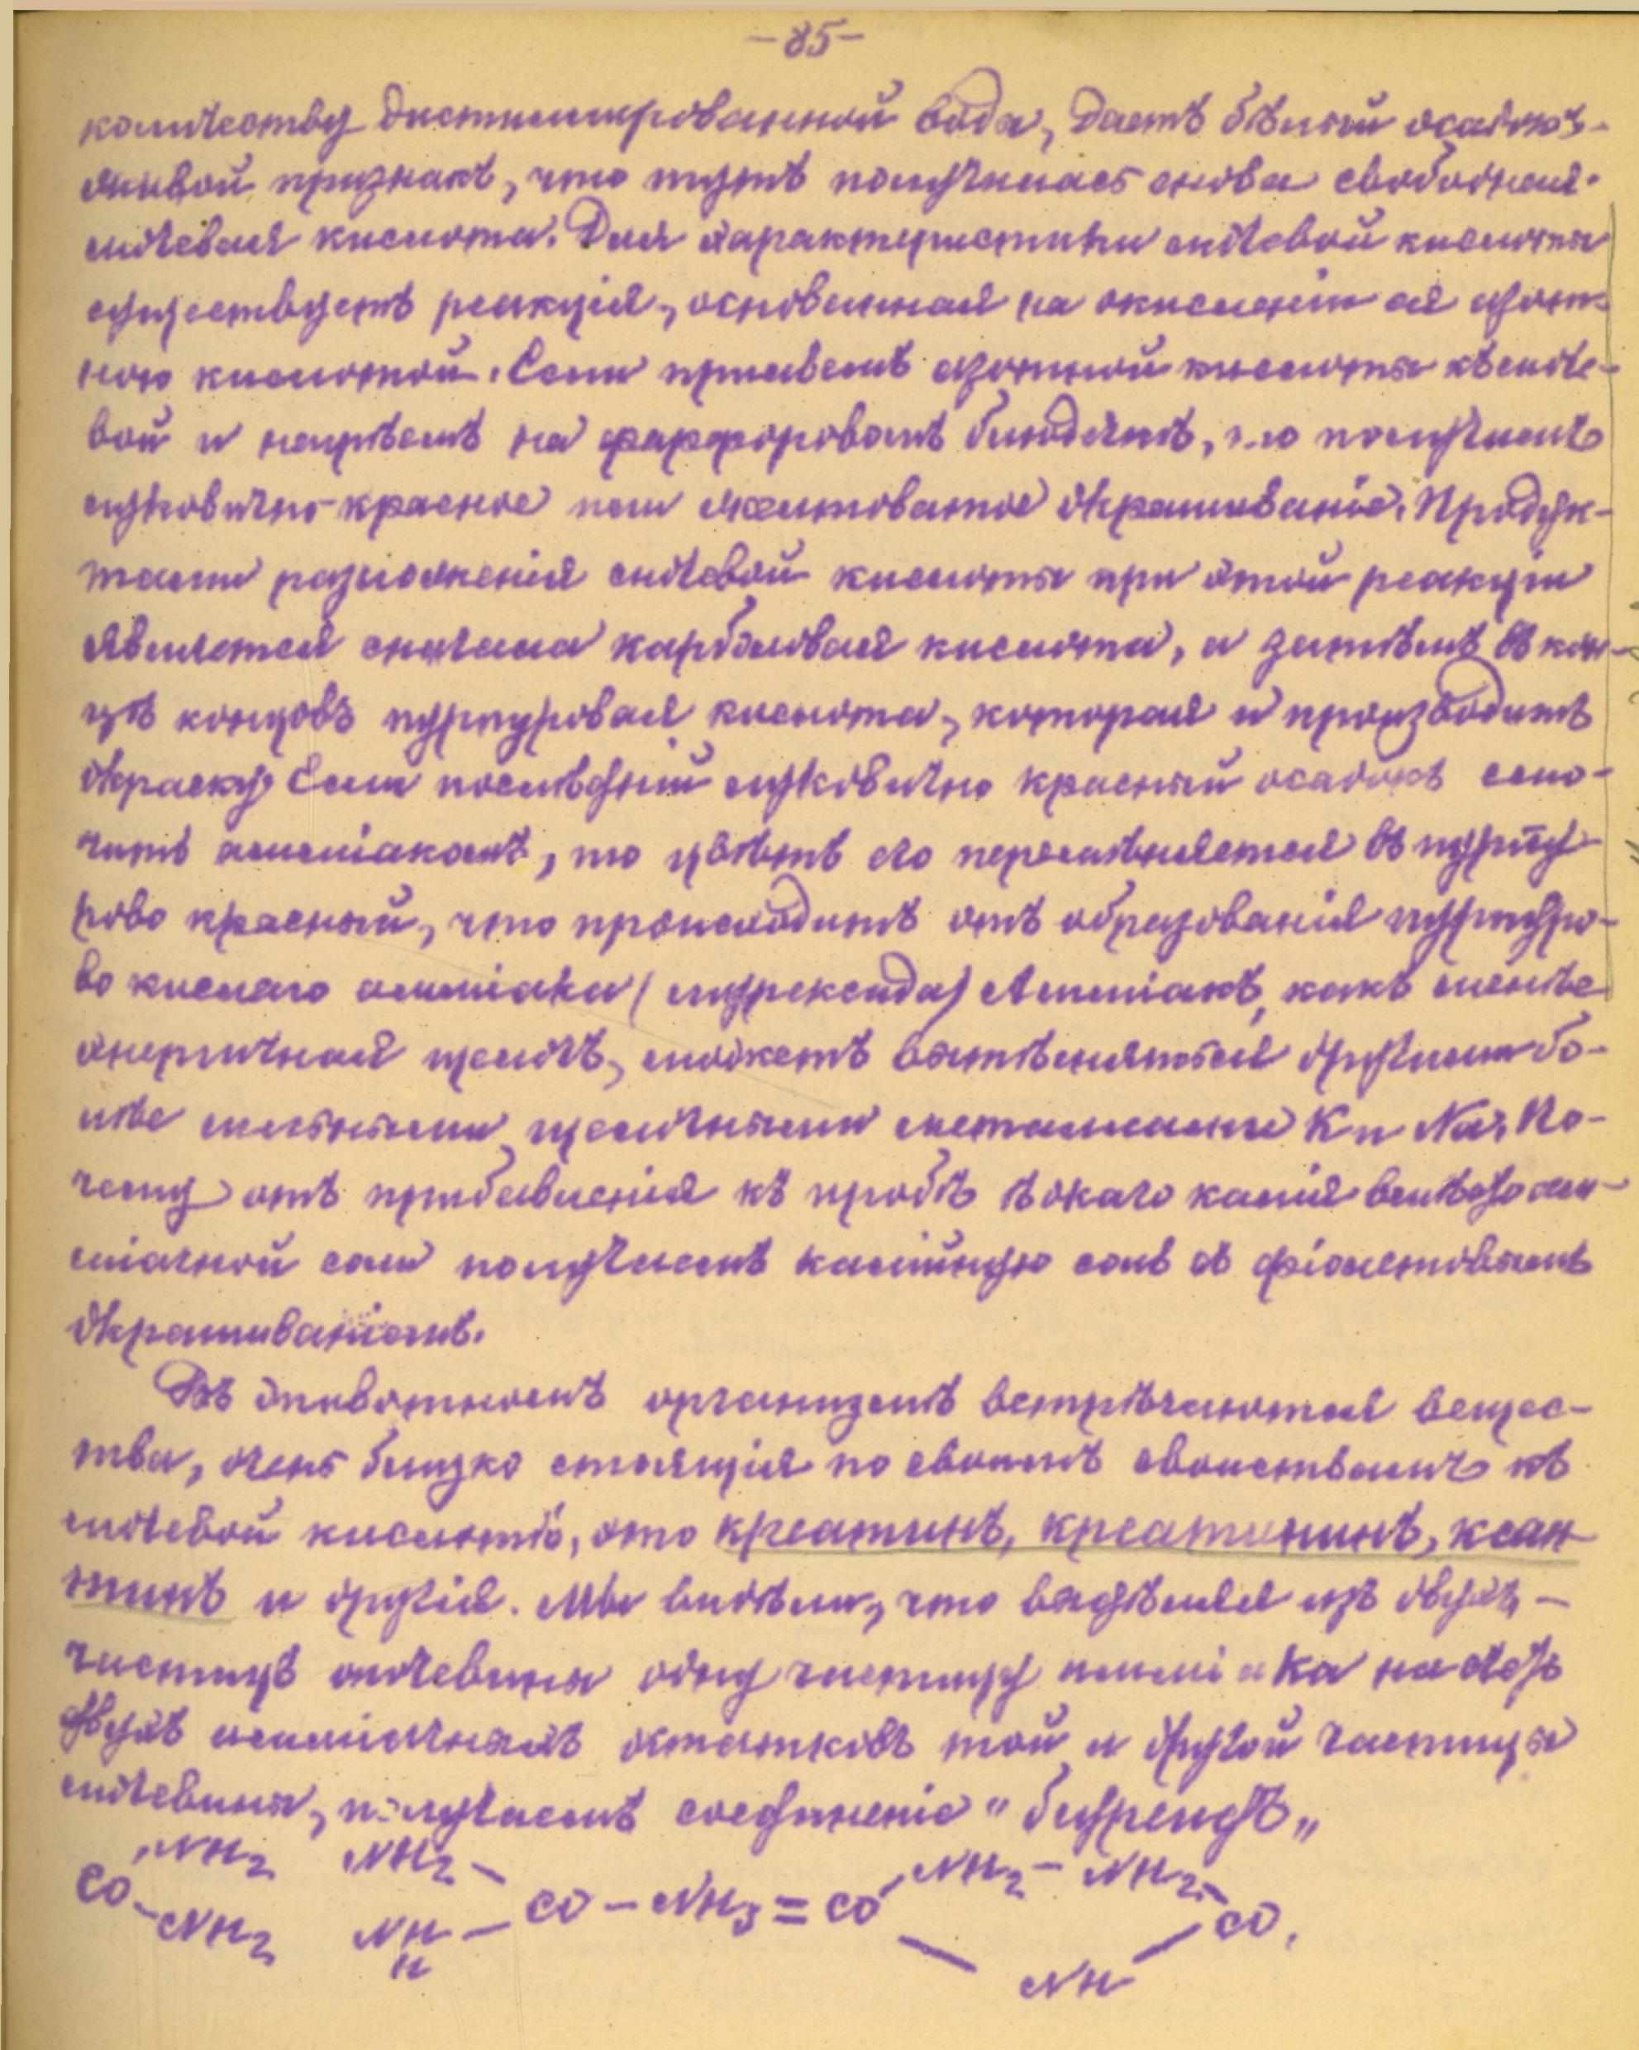 -85-
количеству дистиллированной воды, даетъ бѣлый осадокъ-
живой признакъ, что тутъ получилась снова свободная
мочевая кислота. Для характеристики мочевой кислоты
существуетъ реакція, основанная на окисленіи ея азот-
ною кислотой. Если прибавимъ азотной кислоты къ моче-
вой и нагрѣемъ на фарфоровомъ блюдечкѣ, то получимъ
луковично-красное или желтоватое окрашиваніе. Продук-
тами разложенія мочевой кислоты при этой реакціи
является сначала карболовая кислота, а затѣмъ въ кон-
цѣ концовъ пурпуровая кислота, которая и производитъ
окраску. Если послѣдній луковично красный осадокъ смо-
чить амміакомъ, то цвѣтъ его перемѣняется въ пурпу-
рово красный, что происходитъ отъ образованія пурпуро-
во кислаго амміака (мурексида) Амміакъ, какъ менѣе
энергичная щелочь, можетъ вытѣсняться другими бо-
лѣе сильными щелочными металлами K и Na, по-
чему отъ прибавленія къ пробѣ ѣдкаго калія вмѣсто ам-
міачной соли получаемъ калійную соль съ фіолетовымъ
окрашиваніемъ.
Въ животномъ организмѣ встрѣчаются вещес-
тва, очень близко стоящія по своимъ свойствамъ къ
мочевой кислотѣ, это креатинъ, креатининъ, ксан-
тинъ и другія. Мы видѣли, что выдѣляя изъ двухъ
частицъ мочевины одну частицу амміака на счетъ
двухъ амміачныхъ остатковъ той и другой частицы
мочевины, получаемъ соединеніе "біуреидъ"
NH2 NH2 - NH2 - NH2
CO - CO - NH3 = CO CO.
NH2 NH - NH
H